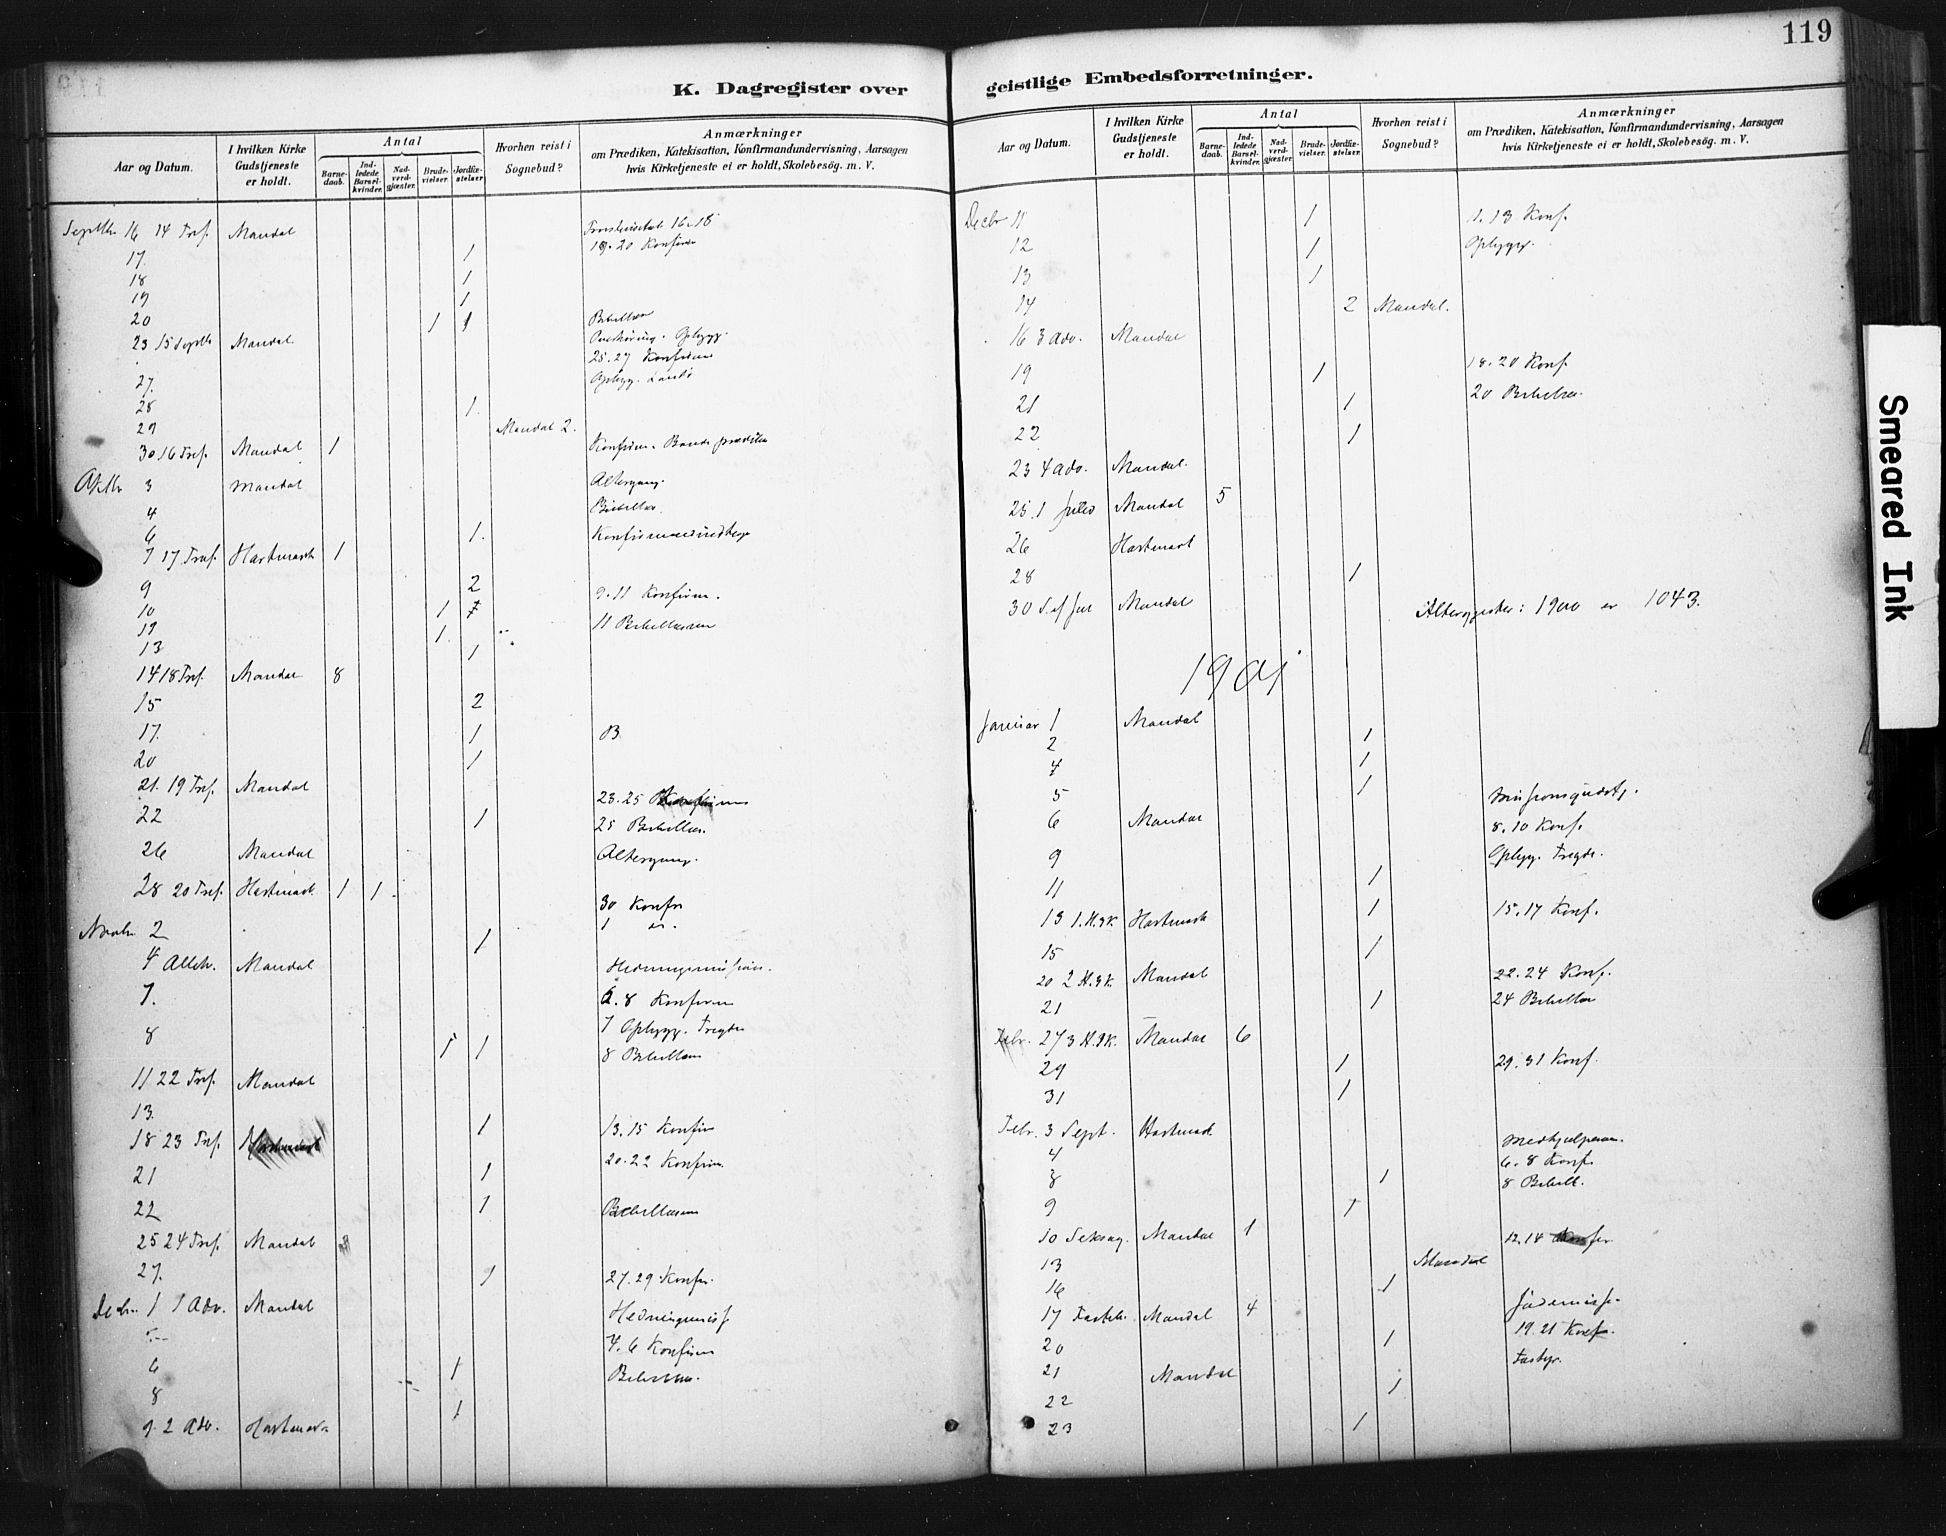 119
K. Dagregister over geistlige Embedsforretninger.
Aar og Datum. I hvilken Kirke Gudstjeneste er holdt. Antal Barnedaab. Indledede Barselkvinder. Nadverdgjæster. Brudevielser. Jordfæstelser. Hvorhen reist i Sognebud? Anmærkninger om Prædiken, Katekisation, Konfirmandundervisning, Aarsagen hvis Kirketjeneste ei er holdt, Skolebesög. m. V.
Septbr 16 14 Tref. Mandal 16-18
17. 1 19-20 Konfirm
18 1
19 1
20 1 1 Bibellæs
23 15 Mandal Opbygg.
25.27 Konfirm
27. Opbygg.
28 1
29 Mandal 2.
30 16 Tref. Mandal 1 Konfirm.
3 Mandal Altergang.
4 Bibellæs.
6 1.
7 17 Tref. Hartmark 1
9 2 9.11 Konfirm.
10 1
11 Bibellæsn
1.
13 1
14 18 Tref. Mandal 8
15 2
17. 1 B
20 1
21. 19 Tref. Mandal
23.25
22 1 25 Bibellæs.
26 Mandal Altergang.
28 20 Tref. Hartmark 1 1
30 Konfir
Novbr. 2 1
4 Alleh. Mandal Hedningemission.
7. 6.8 Konfirm
7 Opbygg. Tregde
8 1 1 8 Bibellæsn
11 22 Tref. Mandal
13. 1 13.15 Konfir
18 23 Tref.
21 1 20.22 Konfirm.
22 1 Bibellæsn
25 24 Tref. Mandal
27. 1 27.29 Konfir.
Decbr. 1 1 Adv. Mandal Hedningemiss
4.6 Konfirm
6 1 Bibellæs.
8 1
9. 2 Adv. Hartmark
Aar og Datum. I hvilken Kirke Gudstjeneste er holdt. Antal Barnedaab. Indledede Barselkvinder. Nadverdgjæster. Brudevielser. Jordfæstelser. Hvorhen reist i Sognebud? Anmærkninger om Prædiken, Katekisation, Konfirmandundervisning, Aarsagen hvis Kirketjeneste ei er holdt, Skolebesög. m. V.
Decbr 11 1 11.13 Konf.
12 1 Opbygg.
13 1
14 2 Mandal.
16 3 Adv. Mandal
19 1 18.20 Konf.
21 1 20 Bibellæs.
22 1
23 4 Adv. Mandal.
25. 1 Juled Mandal 5
26 Hartmark
28 1
30 S. ef Jul Mandal Altergjester i 1900 er 1043.
1901
Januar 1 Mandal
2 1
4 1
5 1 Missionsgudstj.
6 Mandal 8.10 Konf.
9 Opbyg. Tregde.
11 1
13 1. H.3K. Hartmark 1 15.17 Konf.
15 1
20 2 H.3K. Mandal 22.24 Konf.
21 1 24 Bibellæs
27 3 H.3K. Mandal 6
29 1 29.31 Konf.
31 1
Febr. 3 Sept. Hartmark
4 Medhjælperm.
6.8 Konf.
8 1 8 Bibell.
9 1
10 Seksag. Mandal 1 12.14
13 Mandal
16 1
17 Fastel. Mandal 4 Jødemiss.
20 1 19.21 Konf.
21 Mandal Fastepr.
22 1
23 1
Smeared Ink